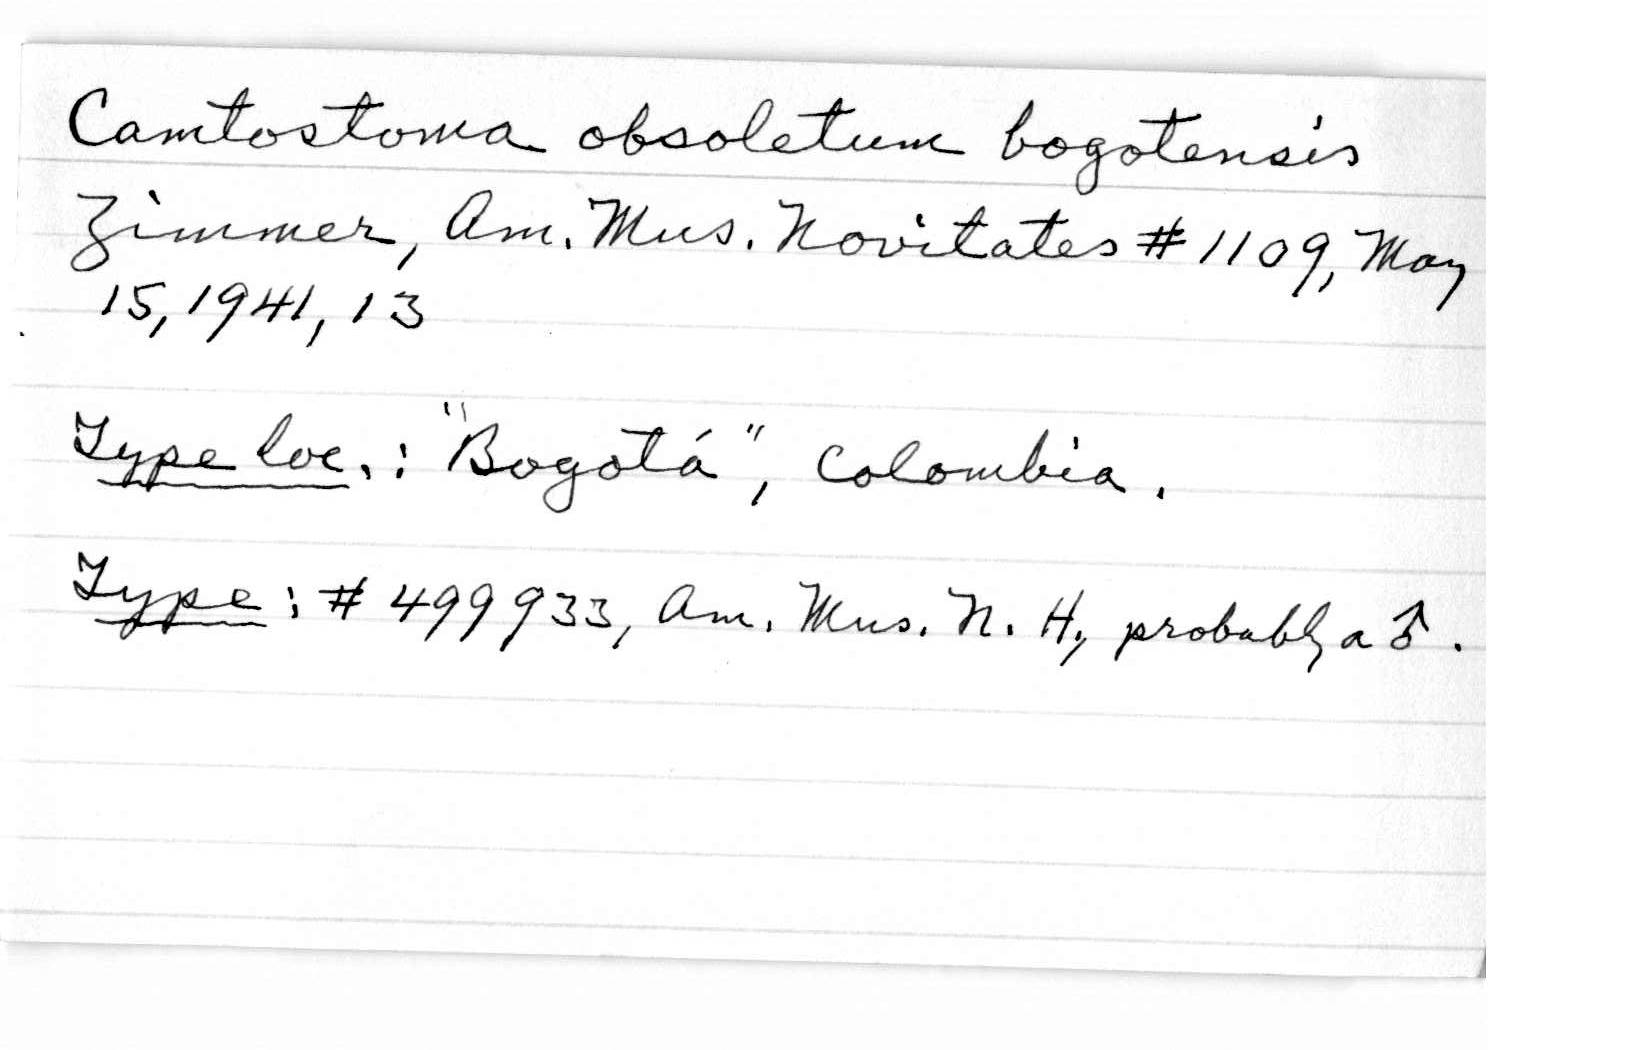 Camtostoma obsoletum bogotensis
Zimmer, Am. Mus. Novitates # 1109, May
15, 1941, 13
Type loc.: "Bogotá", Colombia.
Type: # 499933, Am. Mus. N. H., probably a ♂.